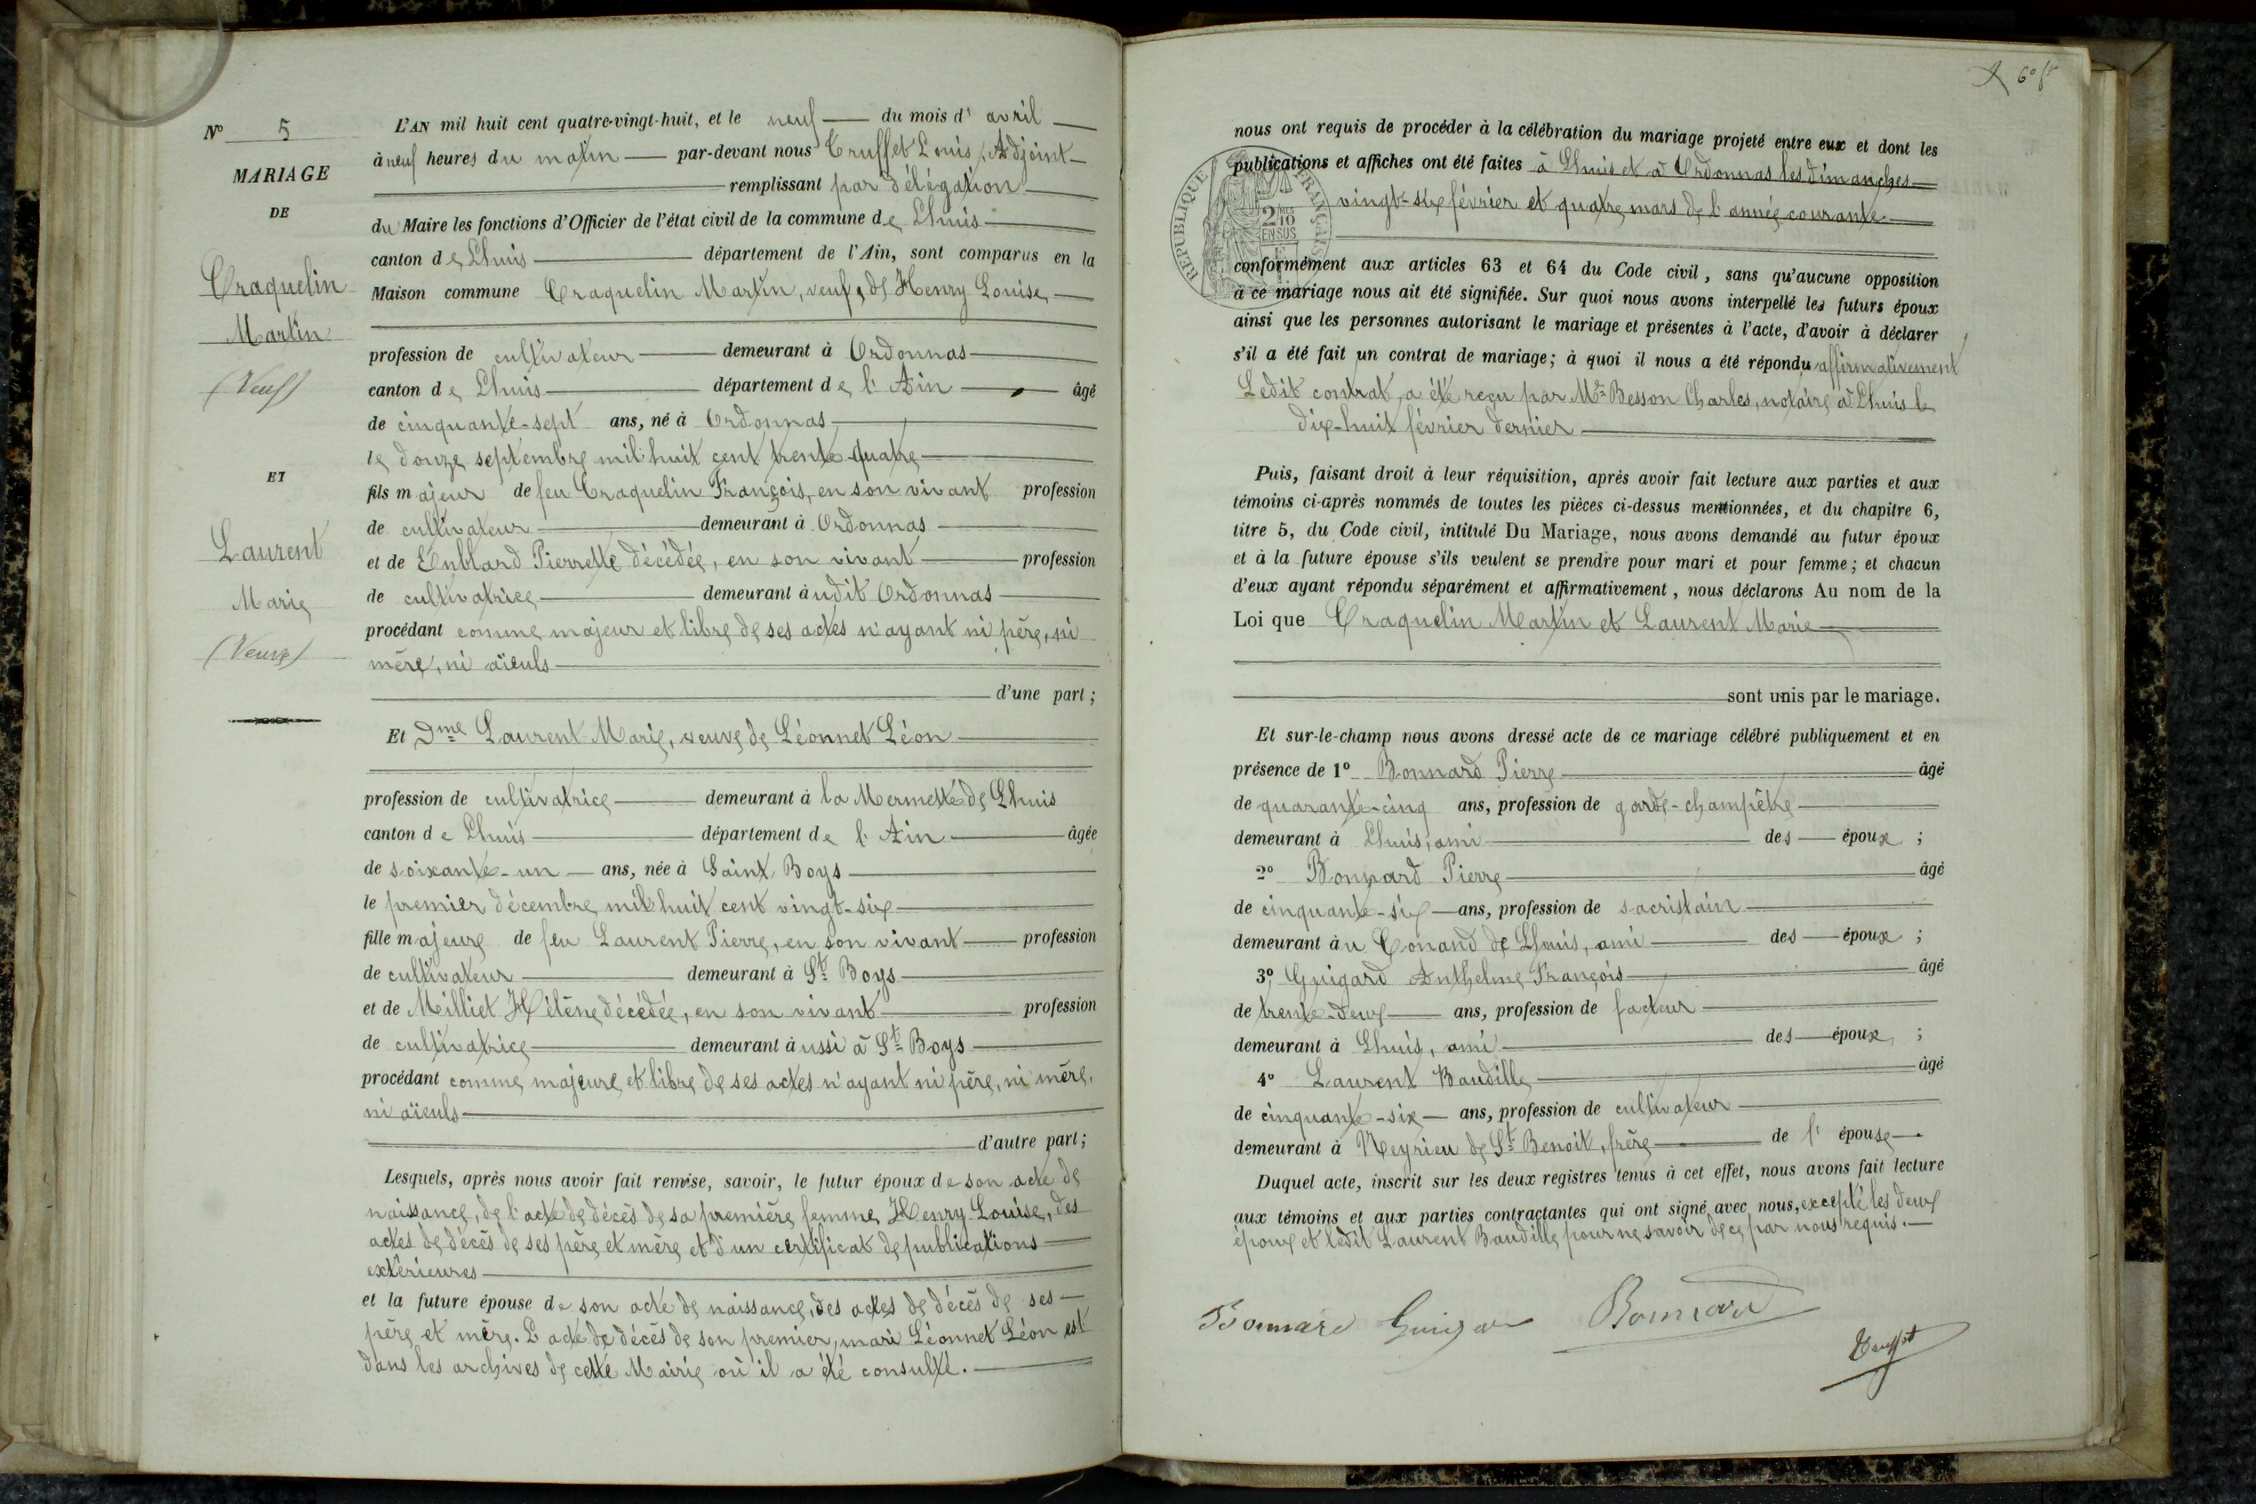 N° 5
MARIAGE
DE
Craquelin
Martin
(Veuf)
ET
Laurent
Marie
(Veuve)
L'AN mil huit cent quatre-vingt-huit, et le neuf du mois d' avril
à neuf heures du matin par-devant nous Truffet Louis, Adjoint
remplissant par délégation
du Maire les fonctions d'Officier de l'état civil de la commune de Lhuis
canton de Lhuis département de l'Ain, sont comparus en la
Maison commune Craquelin Martin, veuf, de Henry Louise,
profession de cultivateur demeurant à Ordonnas
canton de Lhuis département de l'Ain âgé
de cinquante-sept ans, né à Ordonnas
le douze septembre mil huit cent trente-quatre
fils majeur de feu Craquelin François, en son vivant profession
de cultivateur demeurant à Ordonnas
et de Pierrette décédée, en son vivant profession
de cultivatrice demeurant àudit Ordonnas
procédant comme majeur et libre de ses actes n'ayant ni père, ni
mère, ni aïeuls
d'une part ;
Et Dme Laurent Marie, veuve de Léonnet Léon
profession de cultivatrice demeurant à la Mermette de Lhuis
canton de Lhuis département de l'Ain âgée
de soixante-un ans, née à Saint Boys
le premier décembre mil huit cent vingt-six
fille majeure de feu Laurent Pierre, en son vivant profession
de cultivateur demeurant à St Boys
et de Milliet Hélène décédée, en son vivant profession
de cultivatrice demeurant àussi à St Boys
procédant comme majeure et libre de ses actes n'ayant ni père, ni mère,
ni aïeuls
d'autre part ;
Lesquels, après nous avoir fait remise, savoir, le futur époux de son acte de
naissance, de l'acte de décès de sa première femme, Henry Louise, des
actes de décès de ses père et mère et d'un certificat de publications
extérieures
et la future épouse de son acte de naissance, des actes de décès de ses
père et mère. L'acte de décès de son premier mari Léonnet Léon est
dans les archives de cette Mairie où il a été consulté.
nous ont requis de procéder à la célébration du mariage projeté entre eux et dont les
publications et affiches ont été faites à Lhuis et à Ordonnas les dimanches
vingt-six février et quatre mars de l'année courante
REPUBLIQUE FRANÇAISE
2/10 EN SUS
conformément aux articles 63 et 64 du Code civil, sans qu'aucune opposition
à ce mariage nous ait été signifiée. Sur quoi nous avons interpellé les futurs époux
ainsi que les personnes autorisant le mariage et présentes à l'acte, d'avoir à déclarer
s'il a été fait un contrat de mariage ; à quoi il nous a été répondu affirmativement
Ledit contrat, a été reçu par Me Besson Charles, notaire à Lhuis le
dix-huit février dernier
Puis, faisant droit à leur réquisition, après avoir fait lecture aux parties et aux
témoins ci-après nommés de toutes les pièces ci-dessus mentionnées, et du chapitre 6,
titre 5, du Code civil, intitulé Du Mariage, nous avons demandé au futur époux
et à la future épouse s'ils veulent se prendre pour mari et pour femme ; et chacun
d'eux ayant répondu séparément et affirmativement, nous déclarons Au nom de la
Loi que Craquelin Martin et Laurent Marie
sont unis par le mariage.
Et sur-le-champ nous avons dressé acte de ce mariage célébré publiquement et en
présence de 1° Bonnard Pierre âgé
de quarante-cinq ans, profession de garde-champêtre
demeurant à Lhuis, ami des époux ;
2° Bonnard Pierre âgé
de cinquante-six ans, profession de sacristain
demeurant àu Conand de Lhuis, ami des époux ;
3° Guigard Anthelme François âgé
de trente-deux ans, profession de facteur
demeurant à Lhuis, ami des époux ;
4° Laurent Baudille âgé
de cinquante-six ans, profession de cultivateur
demeurant à Meyrieu de St Benoit, frère de l'épouse.
Duquel acte, inscrit sur les deux registres tenus à cet effet, nous avons fait lecture
aux témoins et aux parties contractantes qui ont signé avec nous, excepté les deux
époux et ledit Laurent Baudille pour ne savoir de ce par nous requis.
Bonnard Guigard Bonnard
Truffet